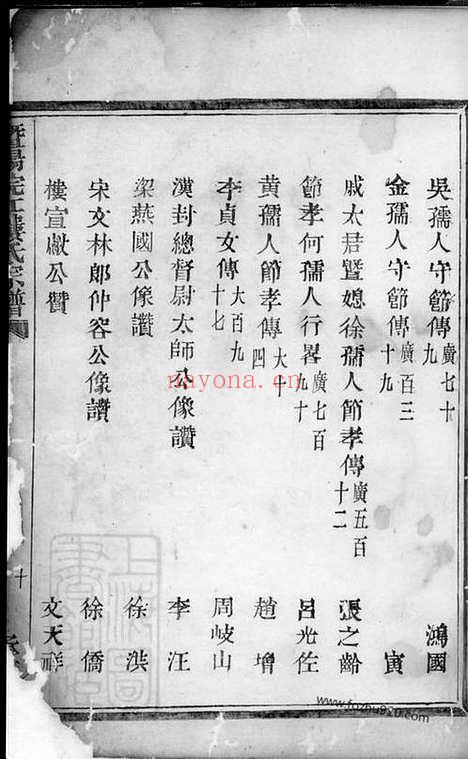 吳孺人守節傳 廣七十九 鴻國
金孺人守節傳 廣百三十九 寅
戚太君暨媳徐孺人節孝傳 廣五百十二 張之齡
節孝何孺人行畧 廣七百九十 呂光佐
黃孺人節孝傳 大十四 趙增
李貞女傳 大百九十七 周岐山
漢封總督尉太師公像讚 李汪
梁燕國公像讚 徐洪
宋文林郎仲容公像讚 徐僑
樓宣獻公贊 文天祥
暨陽 江樓氏宗譜
十
nayona.cn
www.fozhu920.com